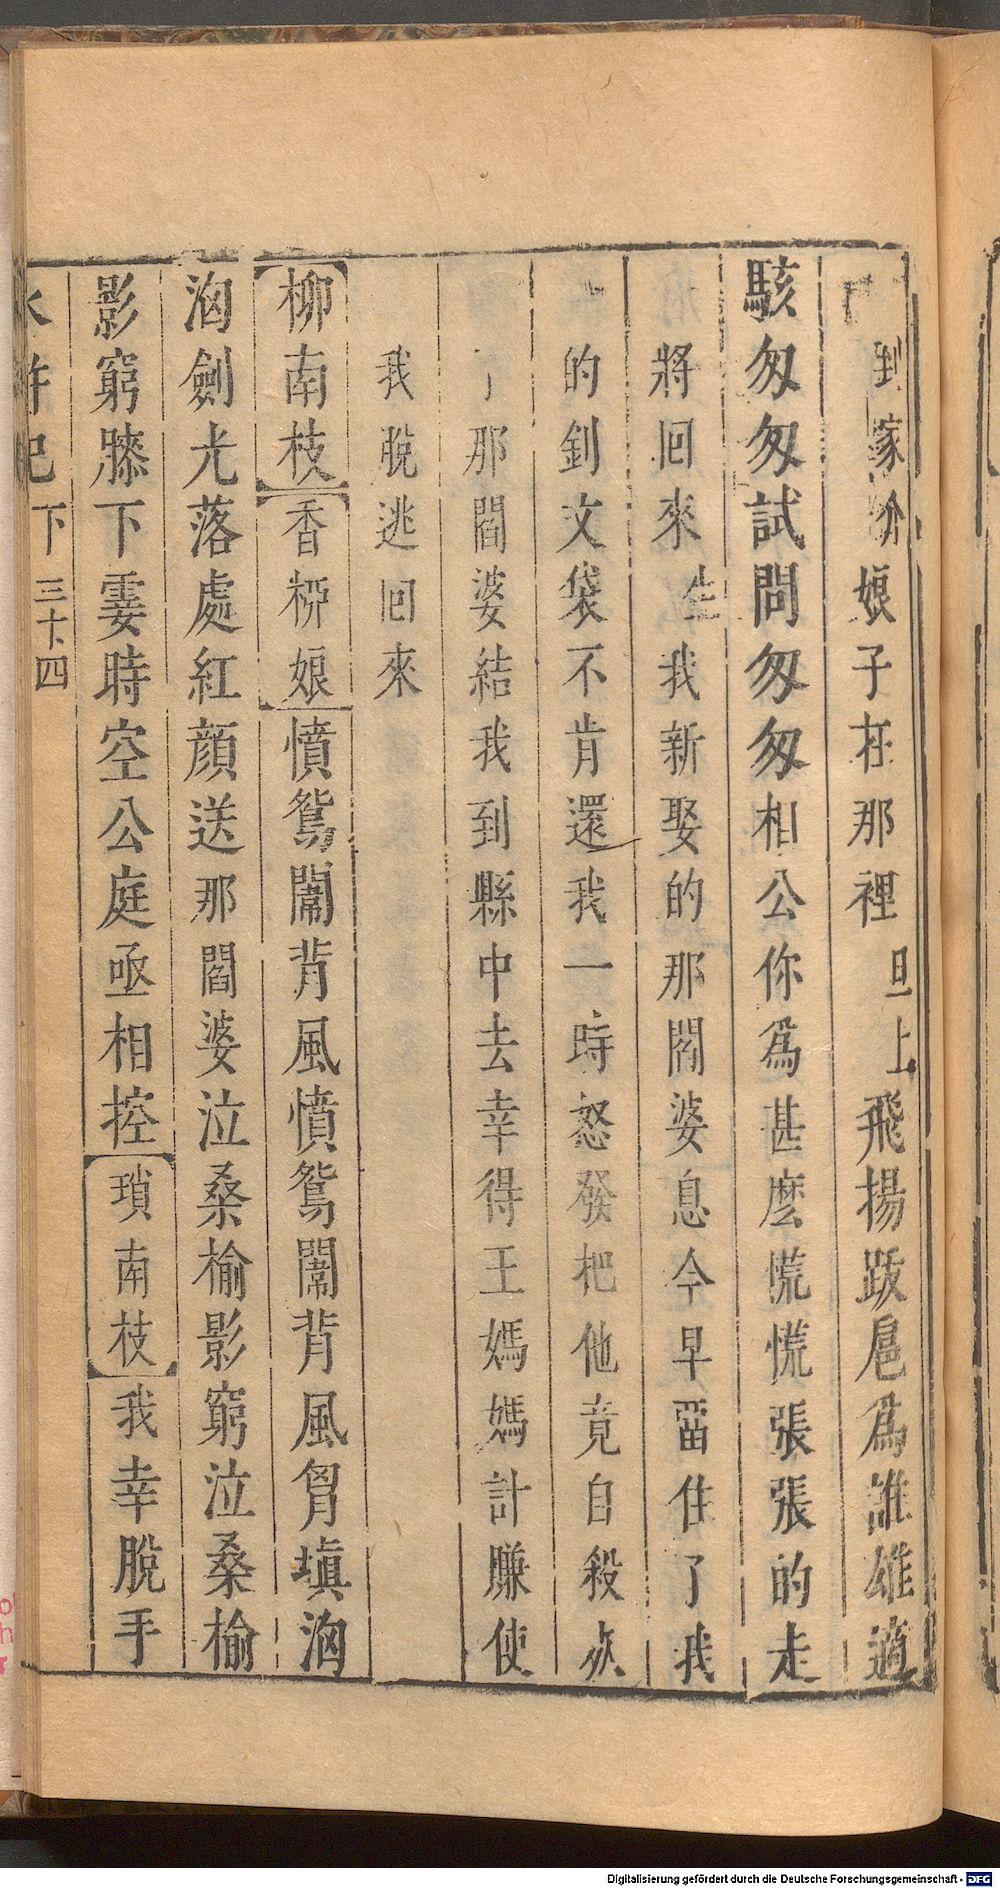 到家介娘子在那裡旦上飛揚跋扈爲誰雄適
駭匆匆試問匆匆相公你爲甚麼慌慌張張的走
將回來生我新娶的那閻婆息今早畱住了我
的釗文袋不肯還我一時怒發把他竟自殺死
了那閻婆結我到縣中去幸得王媽媽計賺使
我脫逃回來
柳南枝香柳娘憤鴛鬧背風憤鴛鬧背風胷塡洶
洶劍光落處紅顔送那閻婆泣桑榆影窮泣桑榆
影窮膝下霎時空公庭亟相控瑣南枝我幸脫手
水滸記下三十四
Digitalisierung gefördert durch die Deutsche Forschungsgemeinschaft - DFG